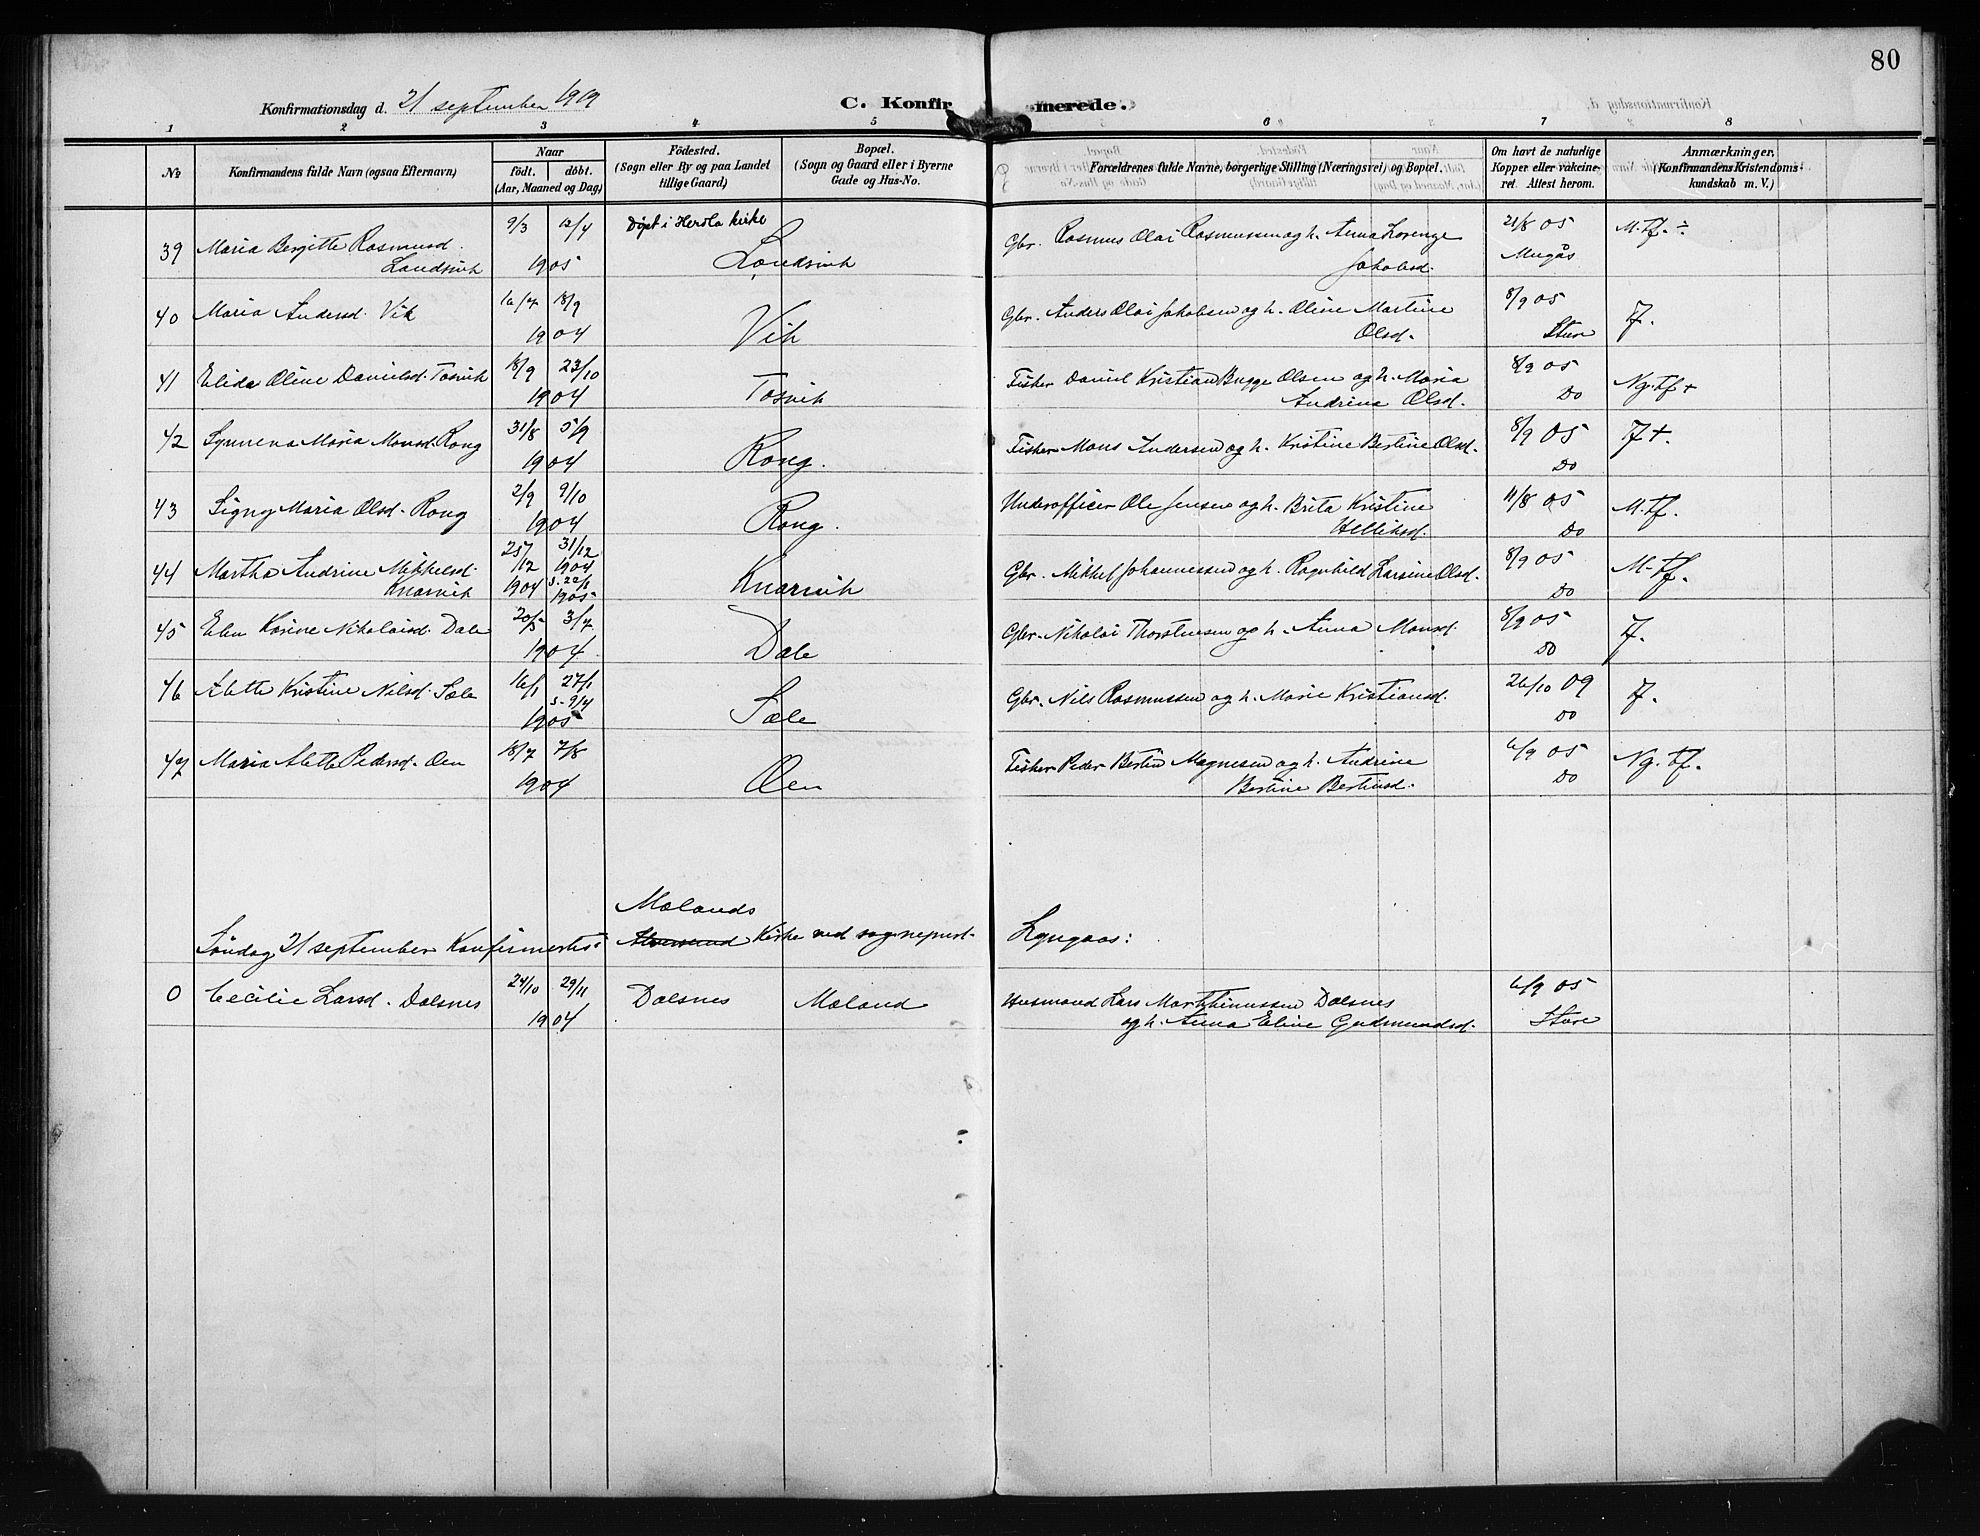 80
Konfirmationsdag d. 21 september 1919
C. Konfirmerede.
1 2 3 4 5 6 7 8
No
Konfirmandens fulde Navn (ogsaa Efternavn)
Naar
födt. döbt.
(Aar, Maaned og Dag)
Födested.
(Sogn eller By og paa Landet
tillige Gaard)
Bopæl.
(Sogn og Gaard eller i Byerne
Gade og Hus-No.
Forældrenes fulde Navne, borgerlige Stilling (Næringsvei) og Bopæl.
Om havt de naturlige
Kopper eller vakcine-
ret Attest herom.
Anmærkninger.
(Konfirmandens Kristendoms-
kundskab m. V.)
39 Maria Bergitte Rasmusd. 9/3 12/4 Döpt i Herdla kirke Gbr. Rasmus Olai Rasmussen og h. Anna Lorenze 21/8 05 M.Tf. ÷
Landsvik 1905 Landsvik Jakobsd. Mugås
40 Maria Andersd. Vik 16/7 18/9 Gbr. Anders Olai Jakobsen og h. Oline Martine 8/9 05 Tf.
1904 Vik Olsd. Sture
41 Elida Oline Danielsd. Tosvik 18/9 23/10 Fisker Daniel Kristian Bugge Olsen og h. Maria 8/9 05 Ng.Tf+
1904 Tosvik Andrina Olsd. Do
42 Synneva Maria Monsd. Rong 31/8 5/9 Fisker Mons Andersen og h. Kristine Bertine Olsd. 8/9 05 Tf+.
1904 Rong. Do
43 Signy Maria Olsd. Rong 2/9 9/10 Underofficer Ole Jensen og h. Brita Kristine 11/8 05 M.Tf.
1904 Rong. Helliksd. Do
44 Martha Andrine Mikkelsd. 25/12 31/12 1904 Gbr. Mikkel Johannessen og h. Ragnhild Larsine Olsd. 8/9 05 M-Tf.
Knarvik 1904 s. 22/1 1905 Knarvik Do
45 Elen Karine Nikolaisd. Dale 20/5 3/7 Gbr. Nikolai Thorstensen og h. Anna Monsd. 8/9 05 Tf.
1904 Dale Do
46 Alette Kristine Nilsd. Sæle 16/1 27/1 s. 9/4 Gbr. Nils Rasmussen og h. Marie Kristiansd. 26/10 09 Tf.
1905 Sæle Do
47 Maria Alette Pedersd. Øen 18/7 7/8 Fisker Peder Bertin Magnesen og h. Andrine 6/9 05 Ng.Tf.
1904 Øen Bertine Bertinsd. Do
Mælands
Søndag 21 september Konfirmertes i Alversund Kirke ved sogneprest Lyngaas:
0 Cecilie Larsd. Dalsnes 24/10 29/11 Dalsnes Mæland Husmand Lars Marthinussen Dalsnes 6/9 05
1904 og h. Anna Eline Gudmundsd. Sture